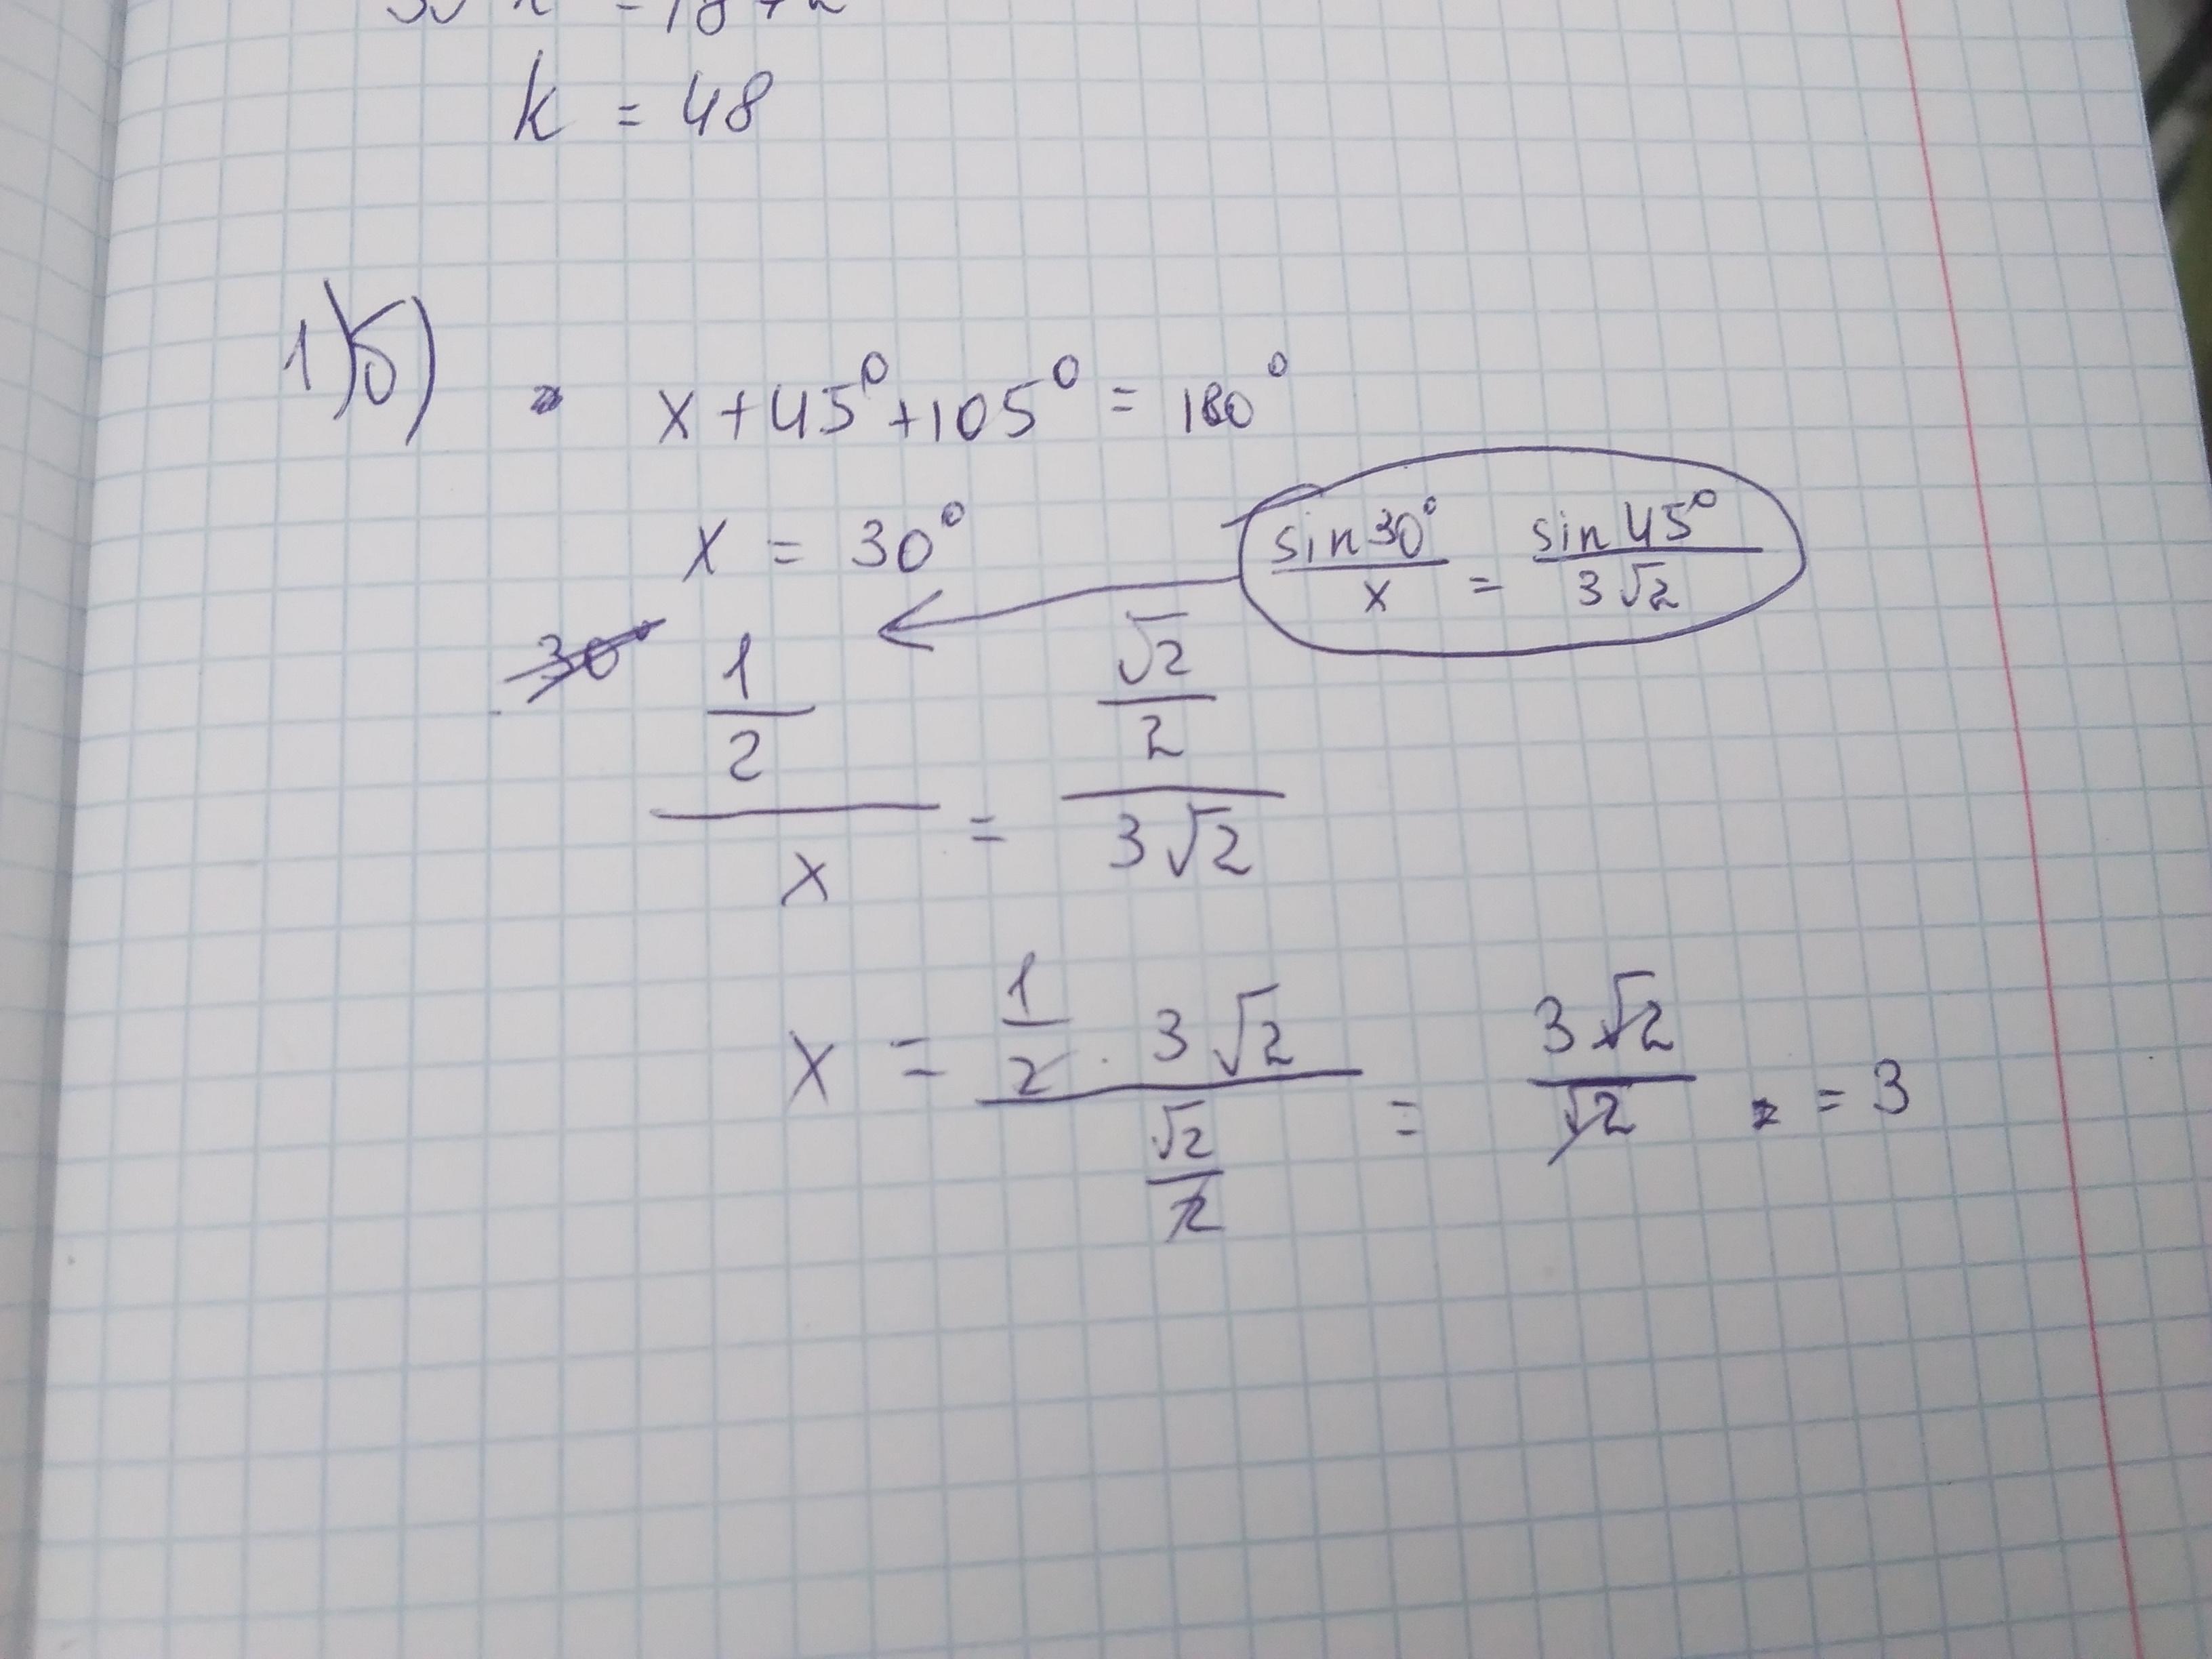 k = 48
1)б) x + 45° + 105° = 180°
x = 30°
sin30°/x = sin45°/3√2
30°
1/2/x = √2/2/3√2
x = 1/2 · 3√2/√2/2 = 3√2/√2 = 3